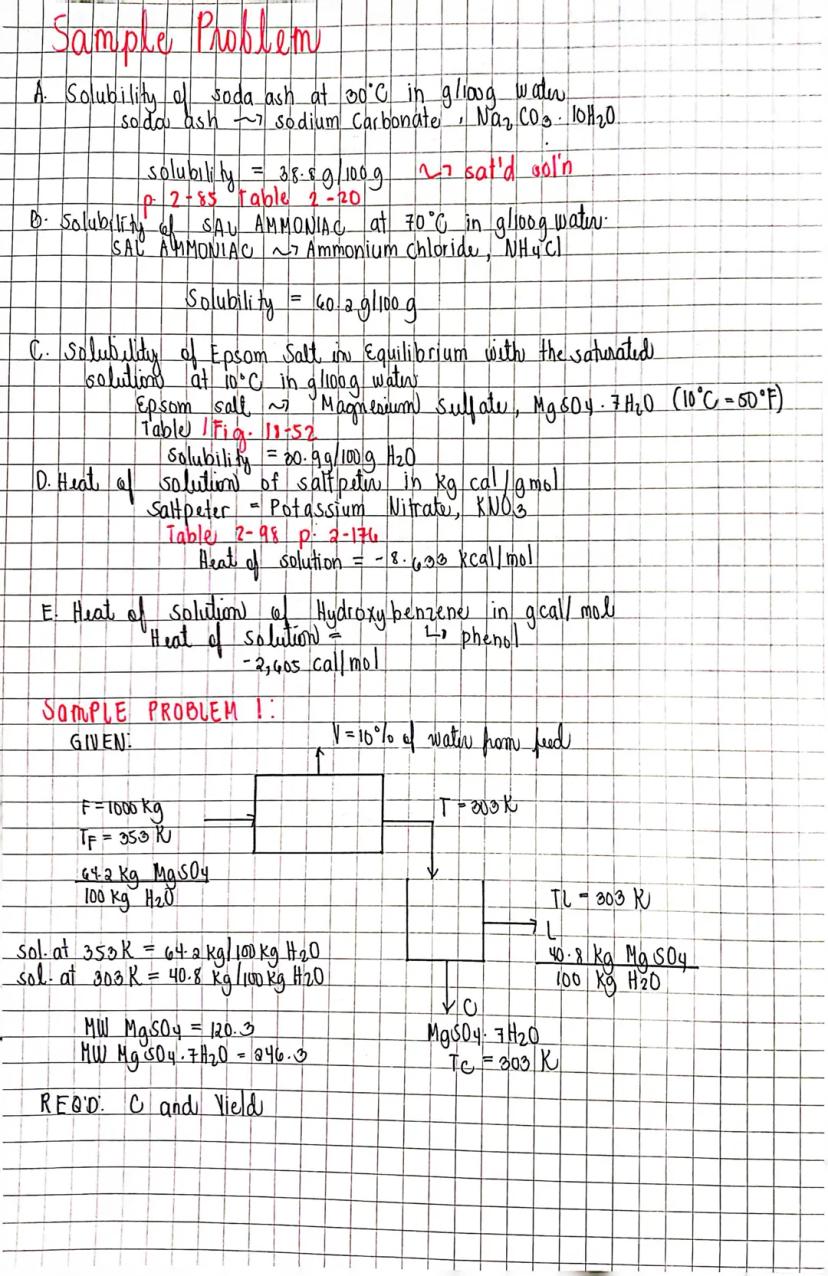 Sample Problem
A. Solubility of soda ash at 30°C in g/100g water
soda ash ~> sodium Carbonate, Na2CO3·10H2O
solubility = 38.8g/100g ~> sat'd sol'n
p. 2-85 Table 2-20
B. Solubility of SAL AMMONIAC at 70°C in g/100g water.
SAL AMMONIAC ~> Ammonium chloride, NH4Cl
Solubility = 60.2g/100g
C. Solubility of Epsom Salt in Equilibrium with the saturated
solution at 10°C in g/100g water
Epsom salt ~> Magnesium Sulfate, MgSO4·7H2O (10°C = 50°F)
Table / Fig. 18-52
Solubility = 30.9g/100g H2O
D. Heat of solution of saltpeter in kg cal/gmol
Saltpeter = Potassium Nitrate, KNO3
Table 2-98 p. 2-176
Heat of solution = -8.633 kcal/mol
E. Heat of Solution of Hydroxybenzene in gcal/mol
Heat of solution = ↳ phenol
-2,605 cal/mol
SAMPLE PROBLEM 1:
GIVEN:
V = 10% of water from feed
F = 1000 kg
T = 303K
TF = 353 K
64.2 kg MgSO4
100 kg H2O
TL = 303 K
L
sol. at 353K = 64.2 kg/100 kg H2O
40.8 kg MgSO4
sol. at 303K = 40.8 kg/100 kg H2O
100 kg H2O
C
MW MgSO4 = 120.3
MgSO4·7H2O
MW MgSO4·7H2O = 246.3
Tc = 303 K
REQ'D: C and Yield